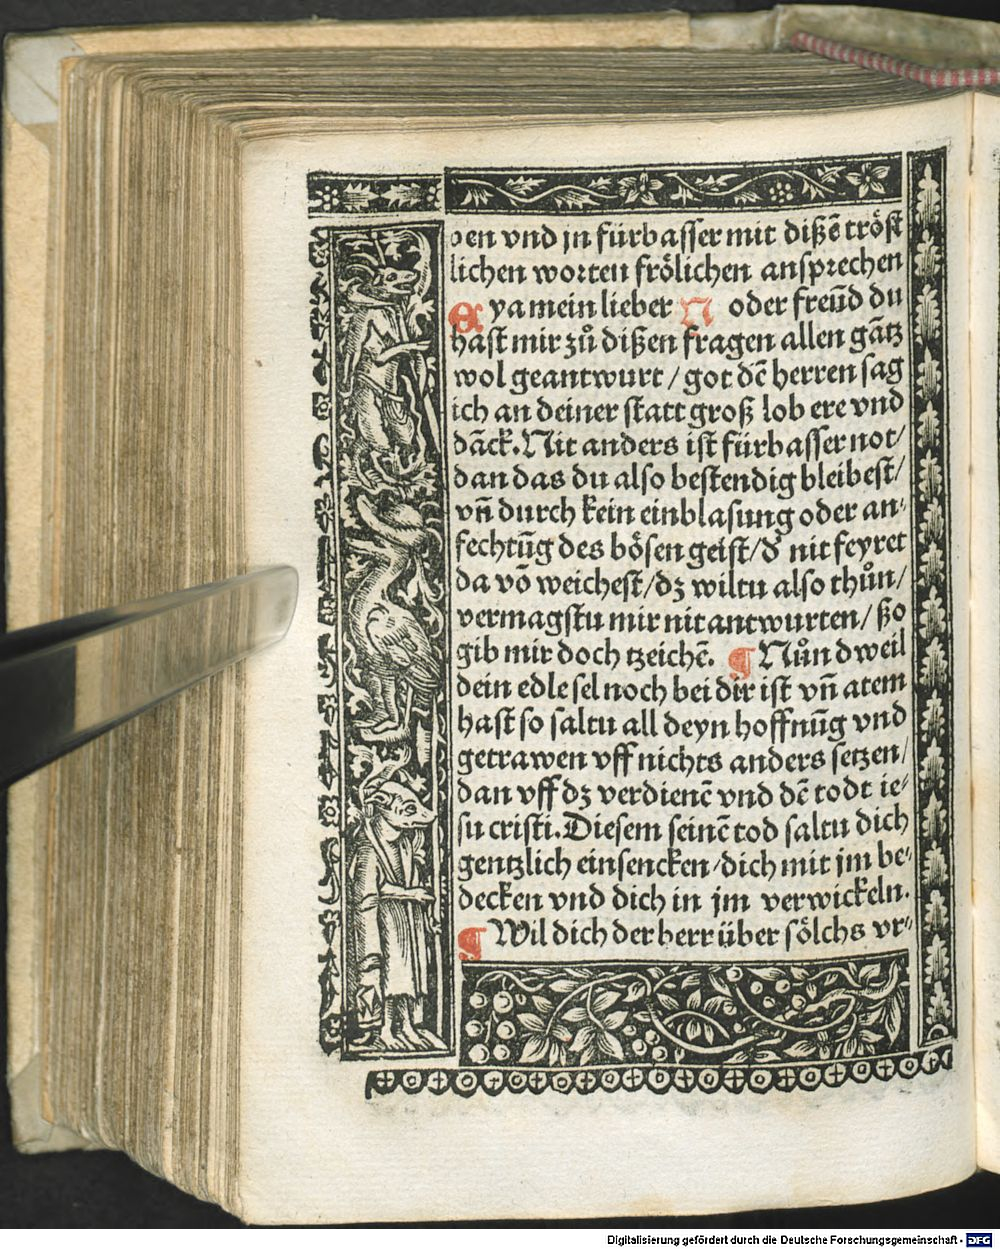 ben vnd jn fürbasser mit dißē tröst
lichen worten frölichen ansprechen
Eya mein lieber N oder freūd du
hast mir zů dißen fragen allen gātz
wol geantwurt / got dē herren sag
ich an deiner statt groß lob ere vnd
dāck. Nit anders ist fürbasser not/
dan das du also bestendig bleibest/
vn̄ durch kein einblasung oder an⸗
fechtūg des bösen geist/ď nit feyret
da vō weichest/dz wiltu also thůn/
vermagstu mir nit antwurten/ ßo
gib mir doch tzeichē. ¶ Nůn dweil
dein edle sel noch bei dir ist vn̄ atem
hast so saltu all deyn hoffnūg vnd
getrawen vff nichts anders setzen/
dan vff dz verdienē vnd dē todt ie⸗
su cristi. Diesem seinē tod saltu dich
gentzlich einsencken/dich mit jm be⸗
decken vnd dich in jm verwickeln.
¶ Wil dich der herr über sölchs vr⸗
Digitalisierung gefördert durch die Deutsche Forschungsgemeinschaft - DFG